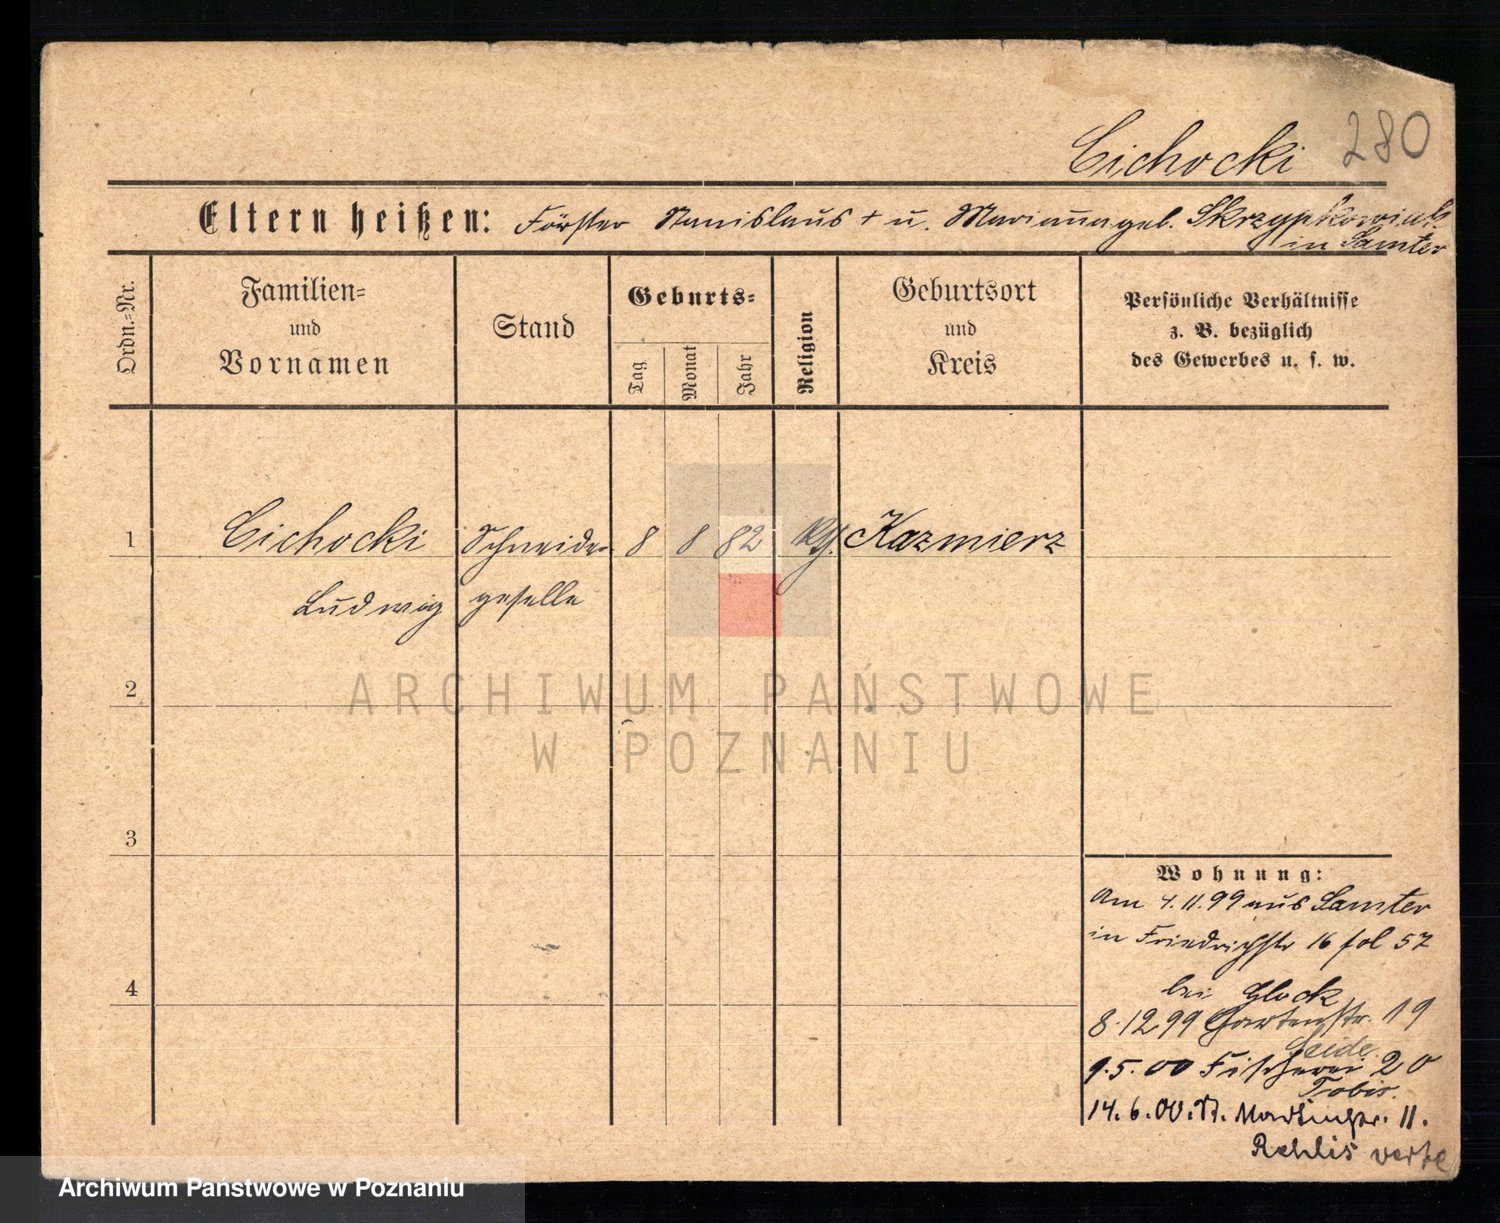 Cichocki 280
Eltern heißen: Förster Stanislaus + u. Marianna geb. Skrzypkowiak
in Samter
Ordn.-Nr.
Familien-
und
Vornamen
Stand
Geburts-
Tag
Monat
Jahr
Religion
Geburtsort
und
Kreis
Persönliche Verhältnisse
z. B. bezüglich
des Gewerbes u. s. w.
1 Cichocki Schneider 8 8 82 Kazmierz
Ludwig geselle
2
ARCHIWUM PAŃSTWOWE
W POZNANIU
3
Wohnung:
Am 4.11.99 aus Samter
in Friedrichstr 16 fol 57
bei Glock
4
8.12 99 Gartenstr. 19
9.5.00 Fischerei 20
14.6.00. St. Martinstr. 11.
verte
Archiwum Państwowe w Poznaniu